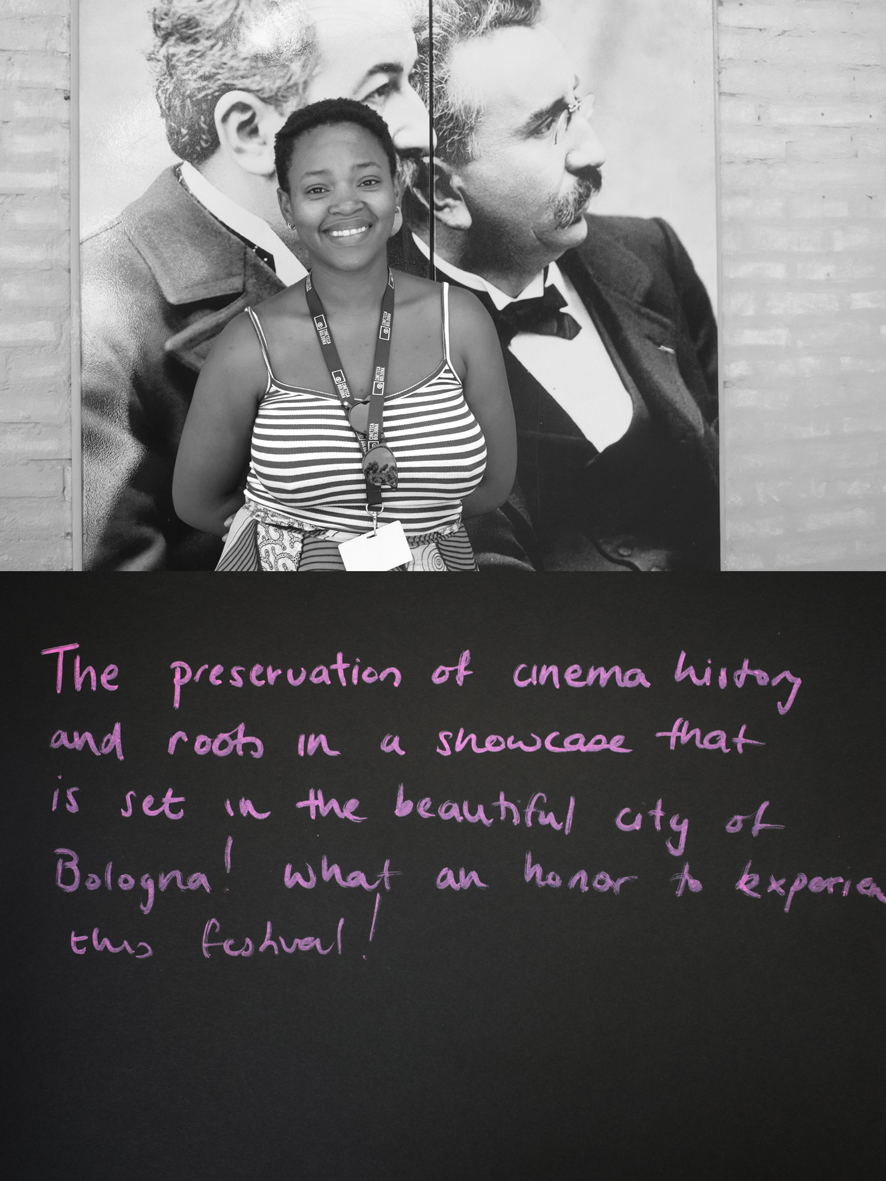 CINETECA
BOLOGNA
The preservation of cinema history
and roots in a showcase that
is set in the beautiful city of
Bologna! what an honor to experien
this festival!